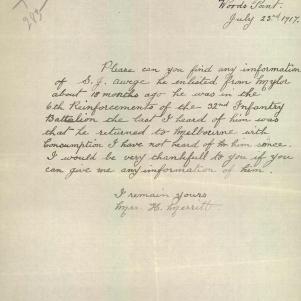 Woods Point.
July 23rd 1917.
283
Please can you find any information
of S. J. Awege he enlisted from Mylor
about 18 months ago he was in the
6th Reinforcements of the 32nd Infantry
Battalion the last I heard of him was
that he returned to Melbourne with
Consumption I have not heard of him since.
I would be very thankfull to you if you
can give me any information of him.
I remain yours
Mrs. H. Merritt